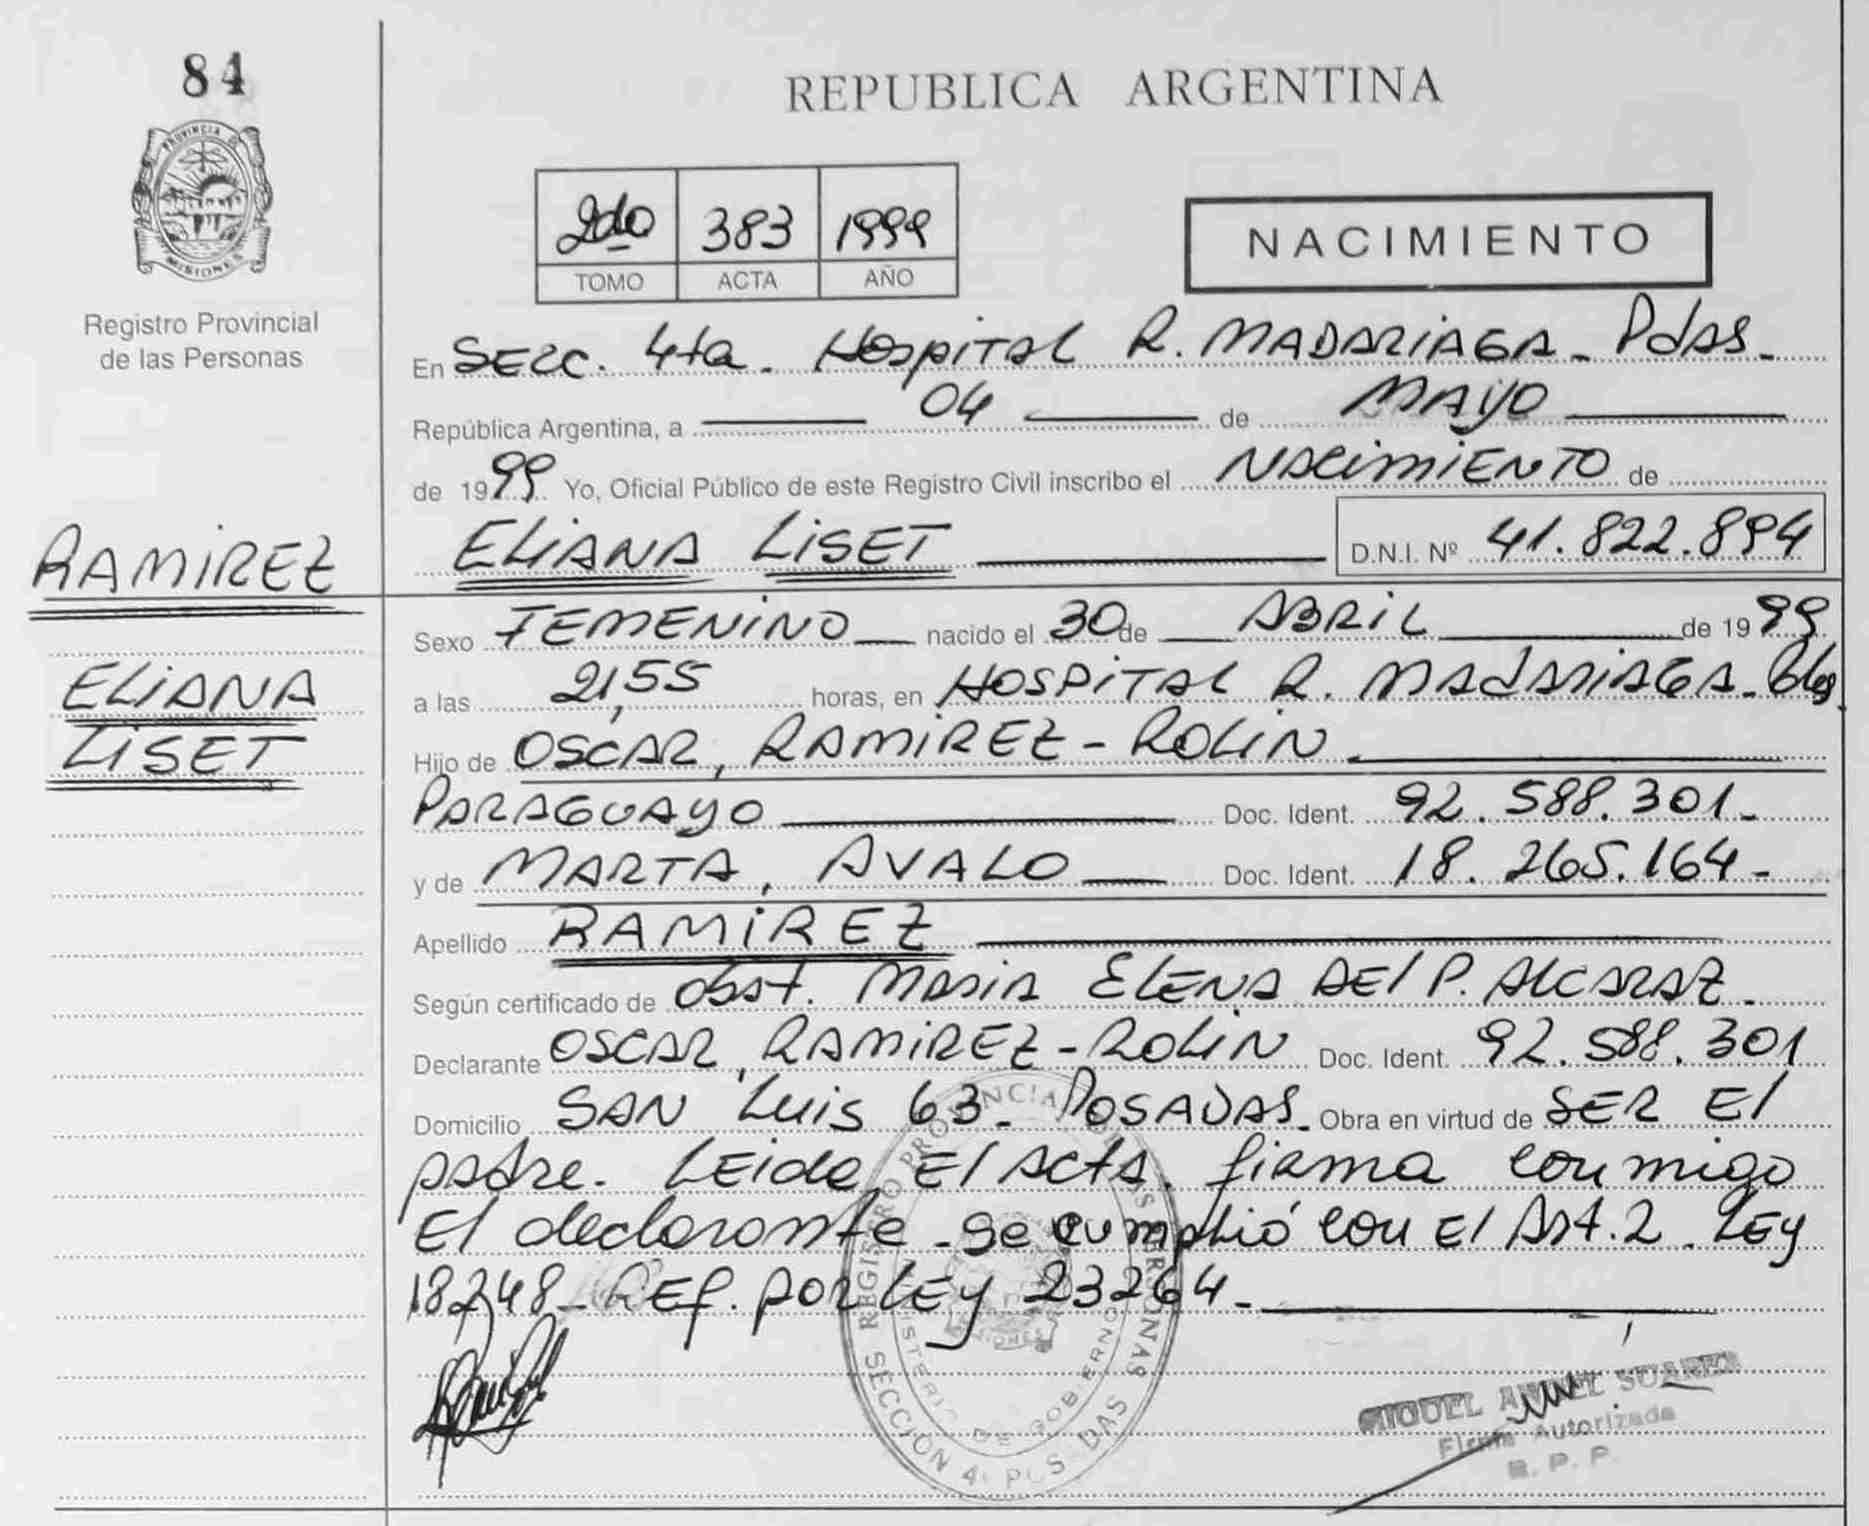 84
PROVINCIA DE
MISIONES
Registro Provincial
de las Personas
RAMIREZ
ELIANA
LISET
REPUBLICA ARGENTINA
2do 383 1999
TOMO ACTA AÑO
NACIMIENTO
En SECC. 4ta. HOSPITAL R. MADARIAGA - Pdas -
República Argentina, a 04 de MAYO
de 1999 Yo, Oficial Público de este Registro Civil inscribo el NACIMIENTO de
ELIANA LISET D.N.I. Nº 41.822.894
Sexo FEMENINO nacido el 30 de ABRIL de 1999
a las 21,55 horas, en HOSPITAL R. MADARIAGA -
Hijo de OSCAR, RAMIREZ - ROLIN
PARAGUAYO Doc. Ident. 92.588.301 -
y de MARTA, AVALO Doc. Ident. 18.265.164 -
Apellido RAMIREZ
Según certificado de Obst. MARIA ELENA DEL P. ALCARAZ -
Declarante OSCAR, RAMIREZ - ROLIN Doc. Ident. 92.588.301
Domicilio SAN LUIS 63 - POSADAS - Obra en virtud de SER El
padre. Leida El Acta, firma conmigo
El declarante - Se cumplió con El Art. 2 - LEy
18248 - REf. por LEy 23264 -
REGISTRO PROVINCIAL DE LAS PERSONAS
MINISTERIO DE GOBIERNO
SECCION 4ª POSADAS
MIGUEL ANGEL SUAREZ
Firma Autorizada
R. P. P.